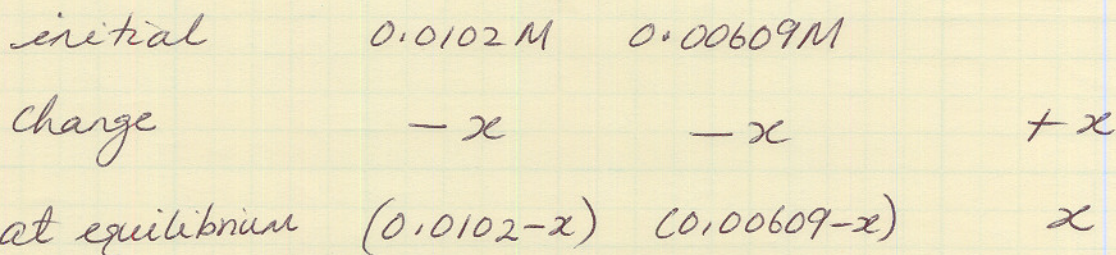 initial 0.0102 M 0.00609M
Change - x - x + x
at equilibrium (0.0102-x) (0.00609-x) x